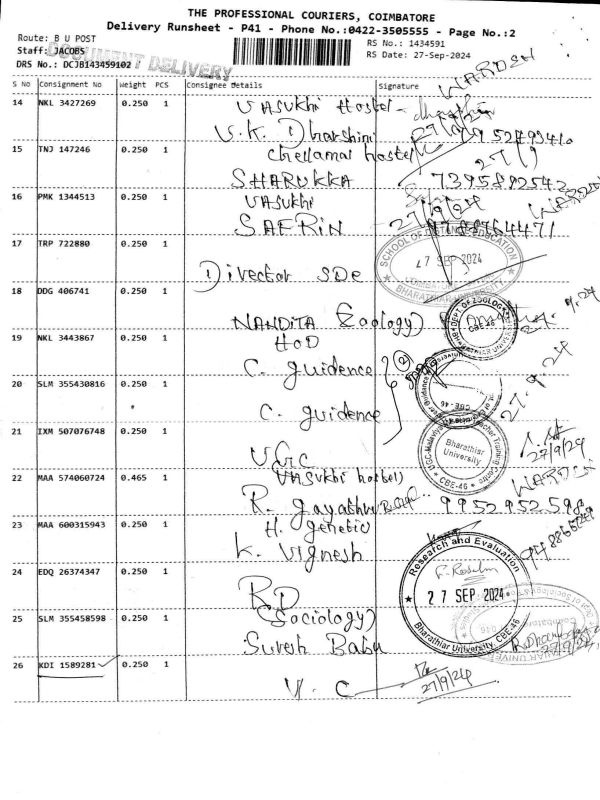 THE PROFESSIONAL COURIERS, COIMBATORE
Delivery Runsheet - P41 - Phone No.:0422-3505555 - Page No.:2
Route: B U POST
RS No.: 1434591
Staff: JACOBS
RS Date: 27-Sep-2024
DOCUMENT DELIVERY
DRS No.: DCJB143459102
S No Consignment No Weight PCS Consignee Details Signature
WARDEN
14 NKL 3427269 0.250 1 Vasukhi Hostel
V.K. Dharshini
15 TNJ 147246 0.250 1 chellamal hostel
SHARUKKA 7395892542
16 PMK 1344513 0.250 1 Vasukhi 27/9/24 WARDEN
SAFRIN 9788764471
17 TRP 722880 0.250 1
SCHOOL OF DISTANCE EDUCATION
27 SEP 2024
BHARATHIAR UNIVERSITY
Director SDe
18 DDG 406741 0.250 1
NANDITA (Zoology)
DEPT OF ZOOLOGY
CBE-46
19 NKL 3443867 0.250 1 HOD
C. guidence
20 SLM 355430816 0.250 1
C. guidence
27.9.24
CBE-46
21 IXM 507076748 0.250 1
UGC
Bharathiar
University
CBE-46
27/9/24
22 MAA 574060724 0.465 1 Vasukhi hostel)
WARDEN
R. gayathri 9952952598
23 MAA 600315943 0.250 1 H. genetic
K. Vignesh
24 EDQ 26374347 0.250 1
RD
Research and Evaluation
27 SEP 2024
Bharathiar University, CBE-46
25 SLM 355458598 0.250 1 (Sociology)
Suresh Babu
27/9/24
26 KDI 1589281 0.250 1
V. C
27/9/24